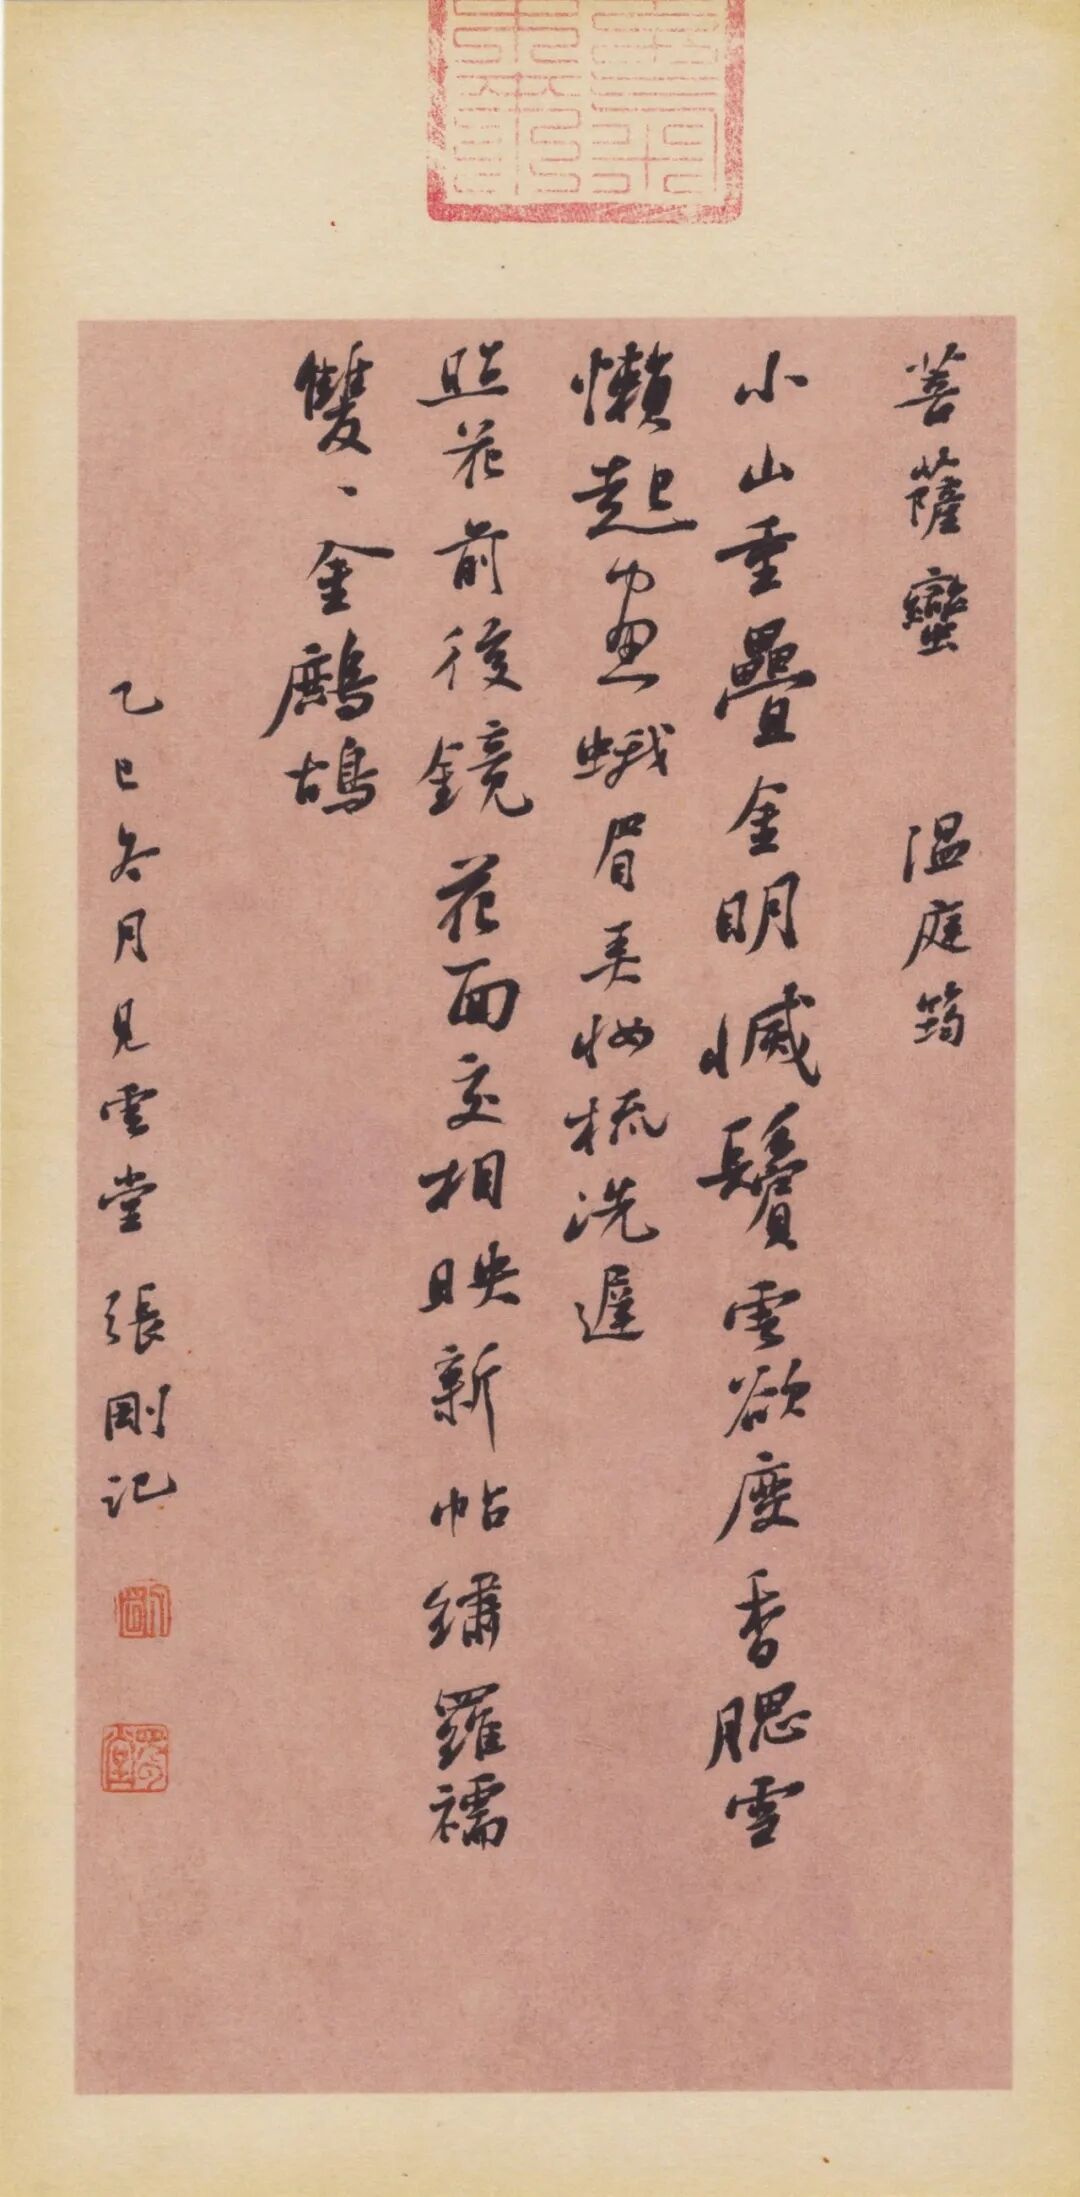 菩薩蠻 溫庭筠
小山重疊金明滅鬢雲欲度香腮雪
懶起畫蛾眉弄妝梳洗遲
照花前後鏡花面交相映新帖繡羅襦
雙、金鷓鴣
乙巳冬月見雲堂張剛記